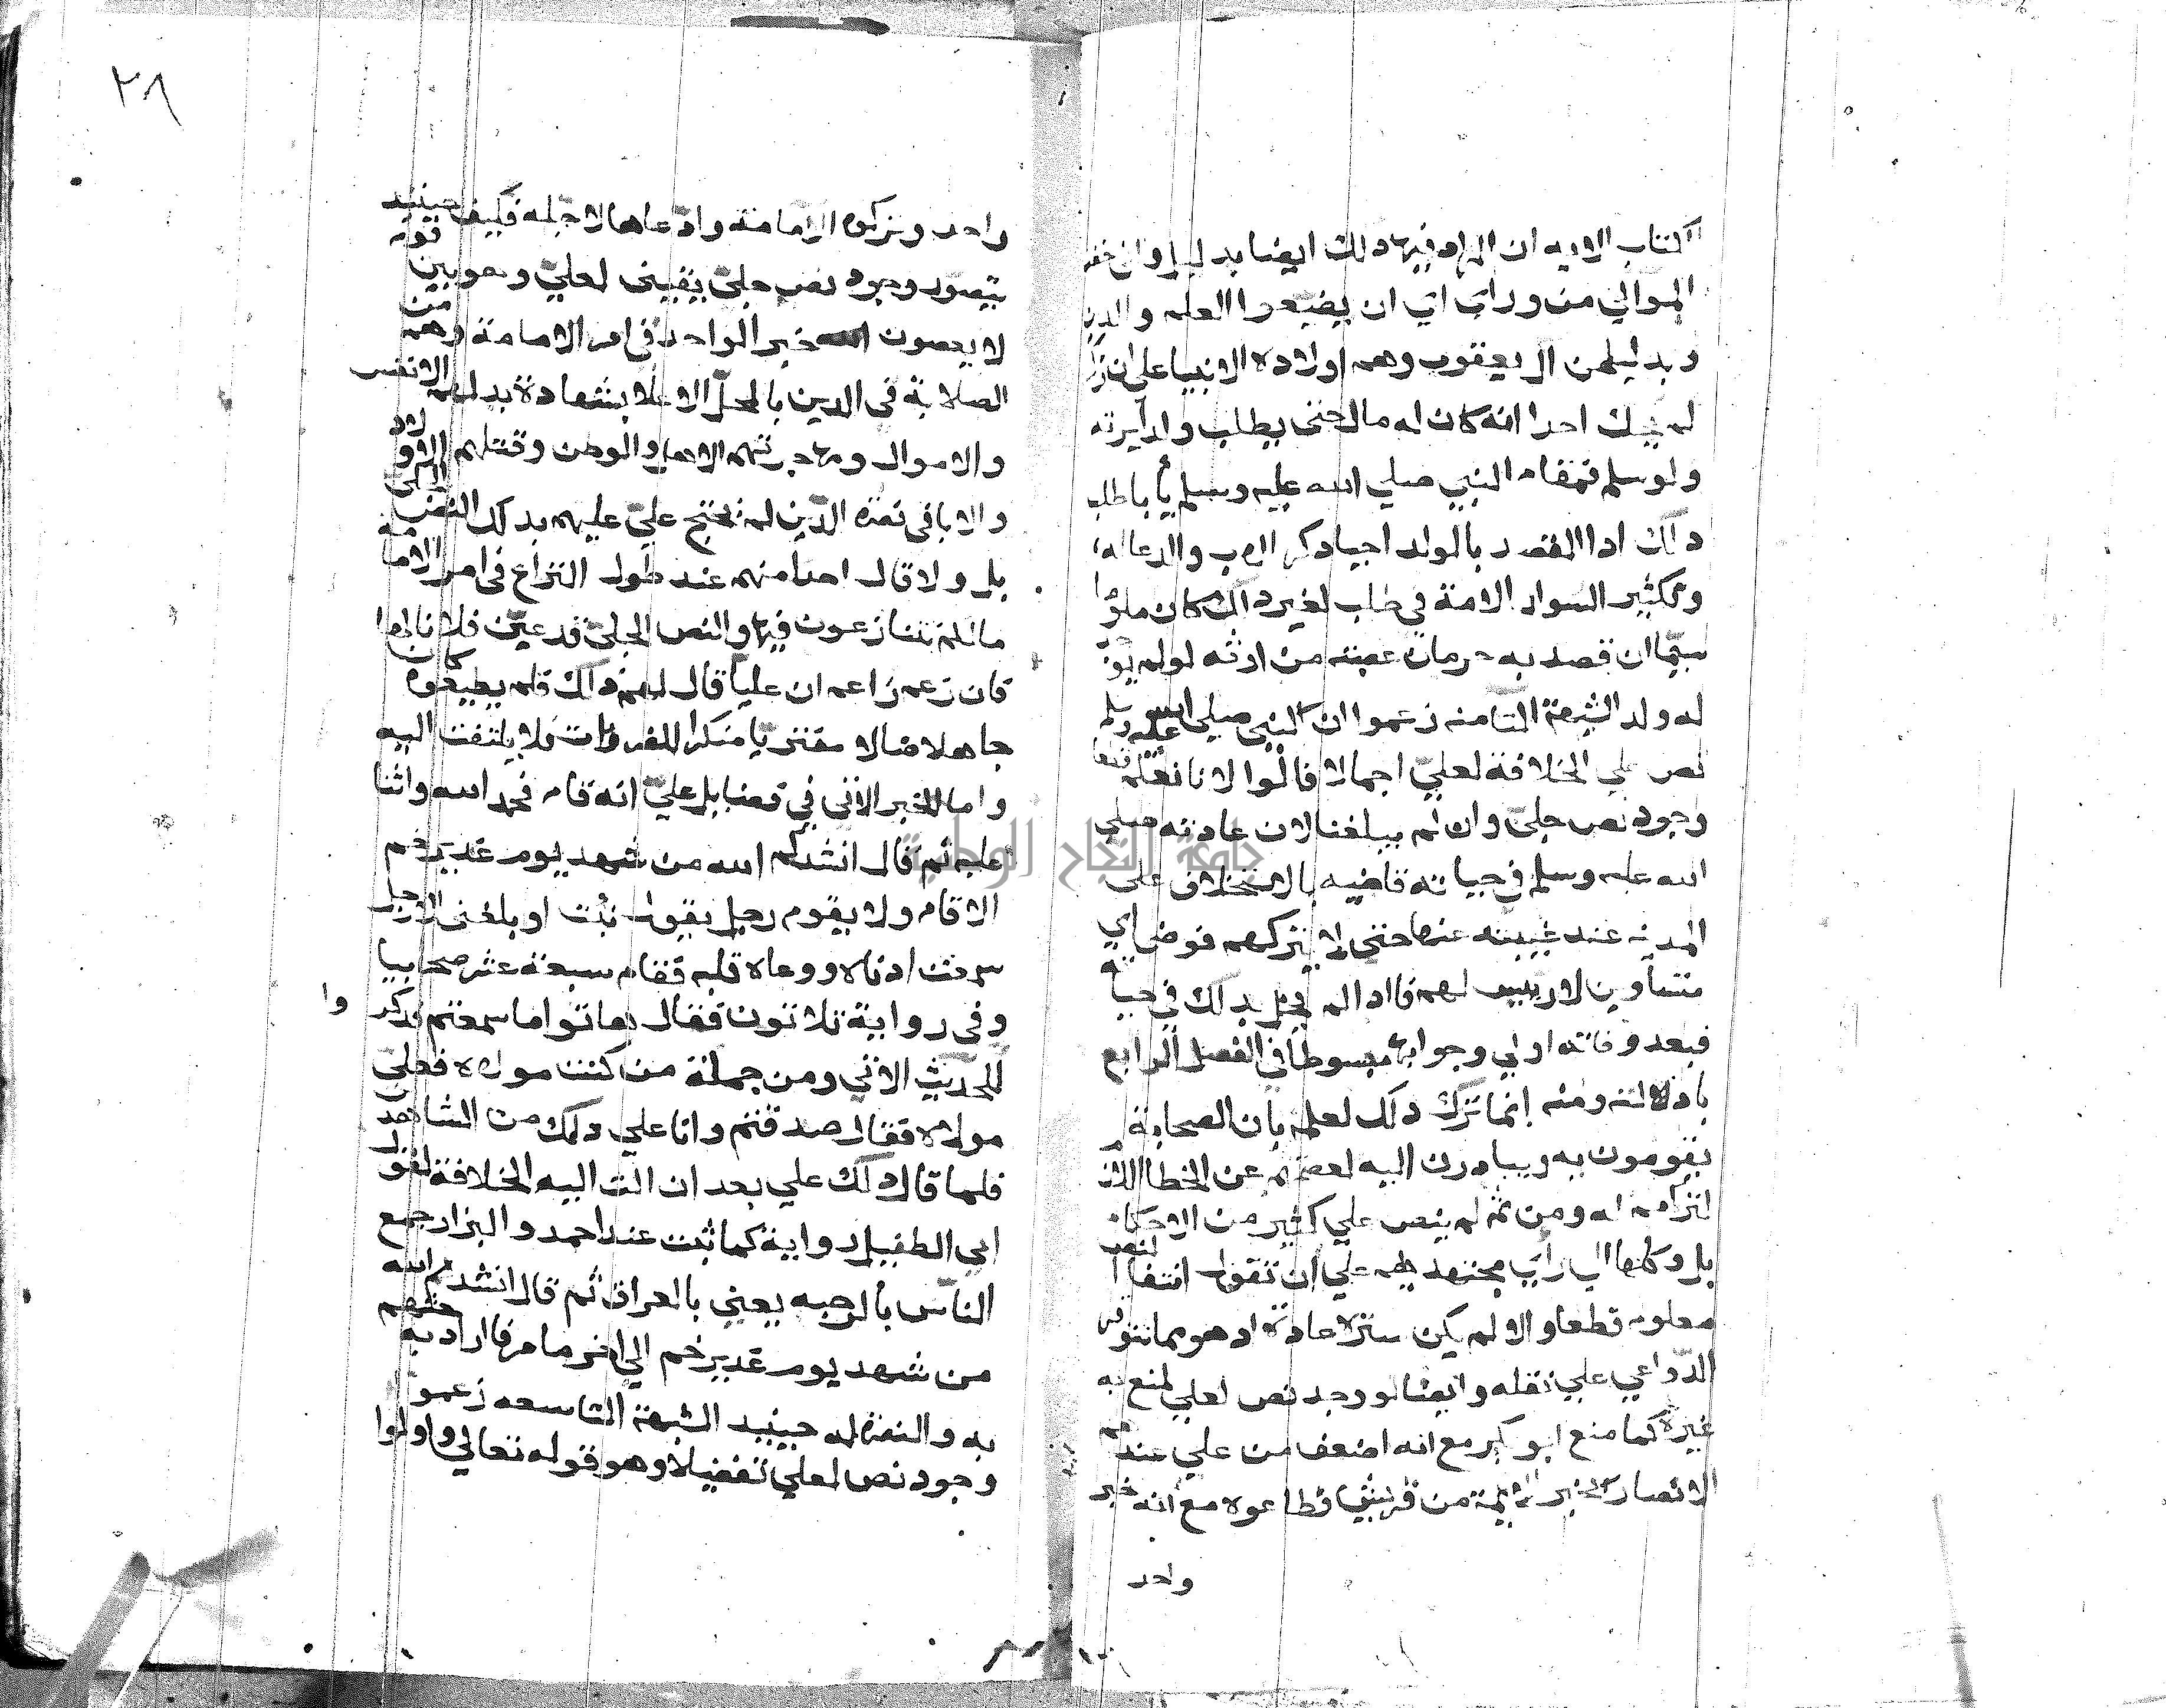 الكتاب الاية ان المراد فيها ذلك ايضا بدليل واني خفت
الموالي من وراي اي ان يضيعوا العلم والدين
وبدليل من ال يعقوب وهم اولاده الانبيا علي ان زكريا
لم يحك احدا انه كان له مال حتى يطلب ولدا يرثه
ولو سلم فمقام النبي صلي الله عليه وسلم يابا طلب
ذلك اذ القصد بالولد احيا ذكر الاب والدعا له
وتكثير السواد الامة في طلب لغير ذلك كان ملوما
سيما ان قصد به حرمان عصبته من ارثه لو لم يوجد
له ولد الشبهة الثامنه زعموا ان النبي صلي الله عليه وسلم
نص علي الخلافة لعليّ اجمالا قالوا لانا نعلم قطعا
وجود نص جليّ وان لم يبلغنا لان عادته صلي
الله عليه وسلم في حياته قاضيه بالاستخلاف على
المدينه عند غيبته عنها حتى لا يتركهم فوضى اي
متساوين لا رييس لهم فاذا لم يخل بذلك في حياته
فبعد وفاته اولي وجوابها مبسوطا في الفصل الرابع
بادلته ومنه إنما ترك ذلك لعلمه بان الصحابة
يقومون به ويبادرون اليه لعصمتهم عن الخطا اللازم
لتركهم له ومن ثم لم ينص علي كثير من الاحكام
بل وكلها الي راي مجتهديهم علي ان نقول انتفا النص
معلوم قطعا والا لم يكن ستره عادة اذ هو مما تتوفر
الدّواعي علي نقله وايضا لو وجد نص لعلي لمنع به
غيره كما منع ابو بكر مع انه اضعف من علي عندهم
الانصار بخبر الائمة من قريش فطاعوه مع انه خبر
واحد
٢٨
واحد وتركوه الامامة وادّعاها لاجله فكيف حينيد
يتصور وجود نص جليّ يقيني لعليّ وهو بين قوم
لا يعصون خبر الواحد في امر الامامة وهم من
الصلابة في الدين بالمحلّ الاعلا بشهادة بدلهم الانفس
والاموال ومهاجرتهم الاهل والوطن وقتلهم الاولاد
والابا في نصره الدّين لم يحتج عليّ عليهم بذلك النص الجلي
بل ولا قال احدا منهم عند طول النزاع في امر الامامة
مالكم تتنازعون فيها والنص الجليّ قد عيّن فلانا لها
فان زعم زاعم ان علياّ قال لهم ذلك فلم يطيعوه كان
جاهلا ضالا مفتريا منكرا للضروريات فلا يلتفت اليه
واما الخبر الاتي في فضايل عليّ انه قام فحمد الله واثنا
عليه ثم قال انشدكم الله من شهد يوم غدير خم
الا قام ولا يقوم رجل يقول نبئت او بلغني الا رجل
سمعت ادناه ووعاه قلبه فقام سبعة عشر صحابيا
وفي رواية ثلاثون فقال هاتوا ما سمعتم فذكروا
الحديث الاتي ومن جملة من كنت مولاه فعلي
مولاه فقال صدقتم وانا علي ذلك من الشاهدين
فلما قال ذلك علي بعد ان الت اليه الخلافة لقول
ابي الطفيل رواية كما ثبت عند احمد والبزار جمع
النّاس بالرحبه يعني بالعراق ثم قال انشدكم الله
من شهد يوم غدير خم الي اخر ما مر فاراد به حثهم
به والنصرة له حينيد الشبهة التاسعه زعمو
وجود نص لعلي تفضيلا وهو قوله تعالي واولوا